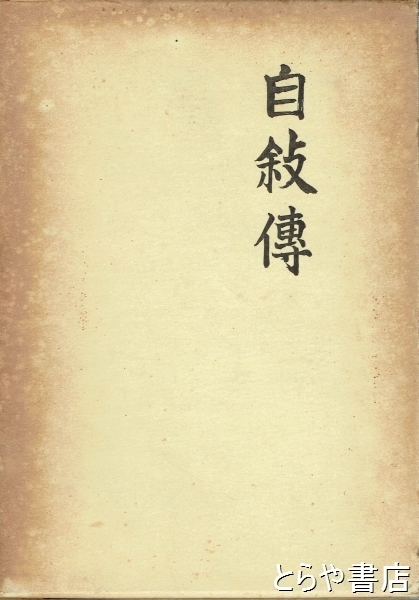 自敍傳
とらや書店